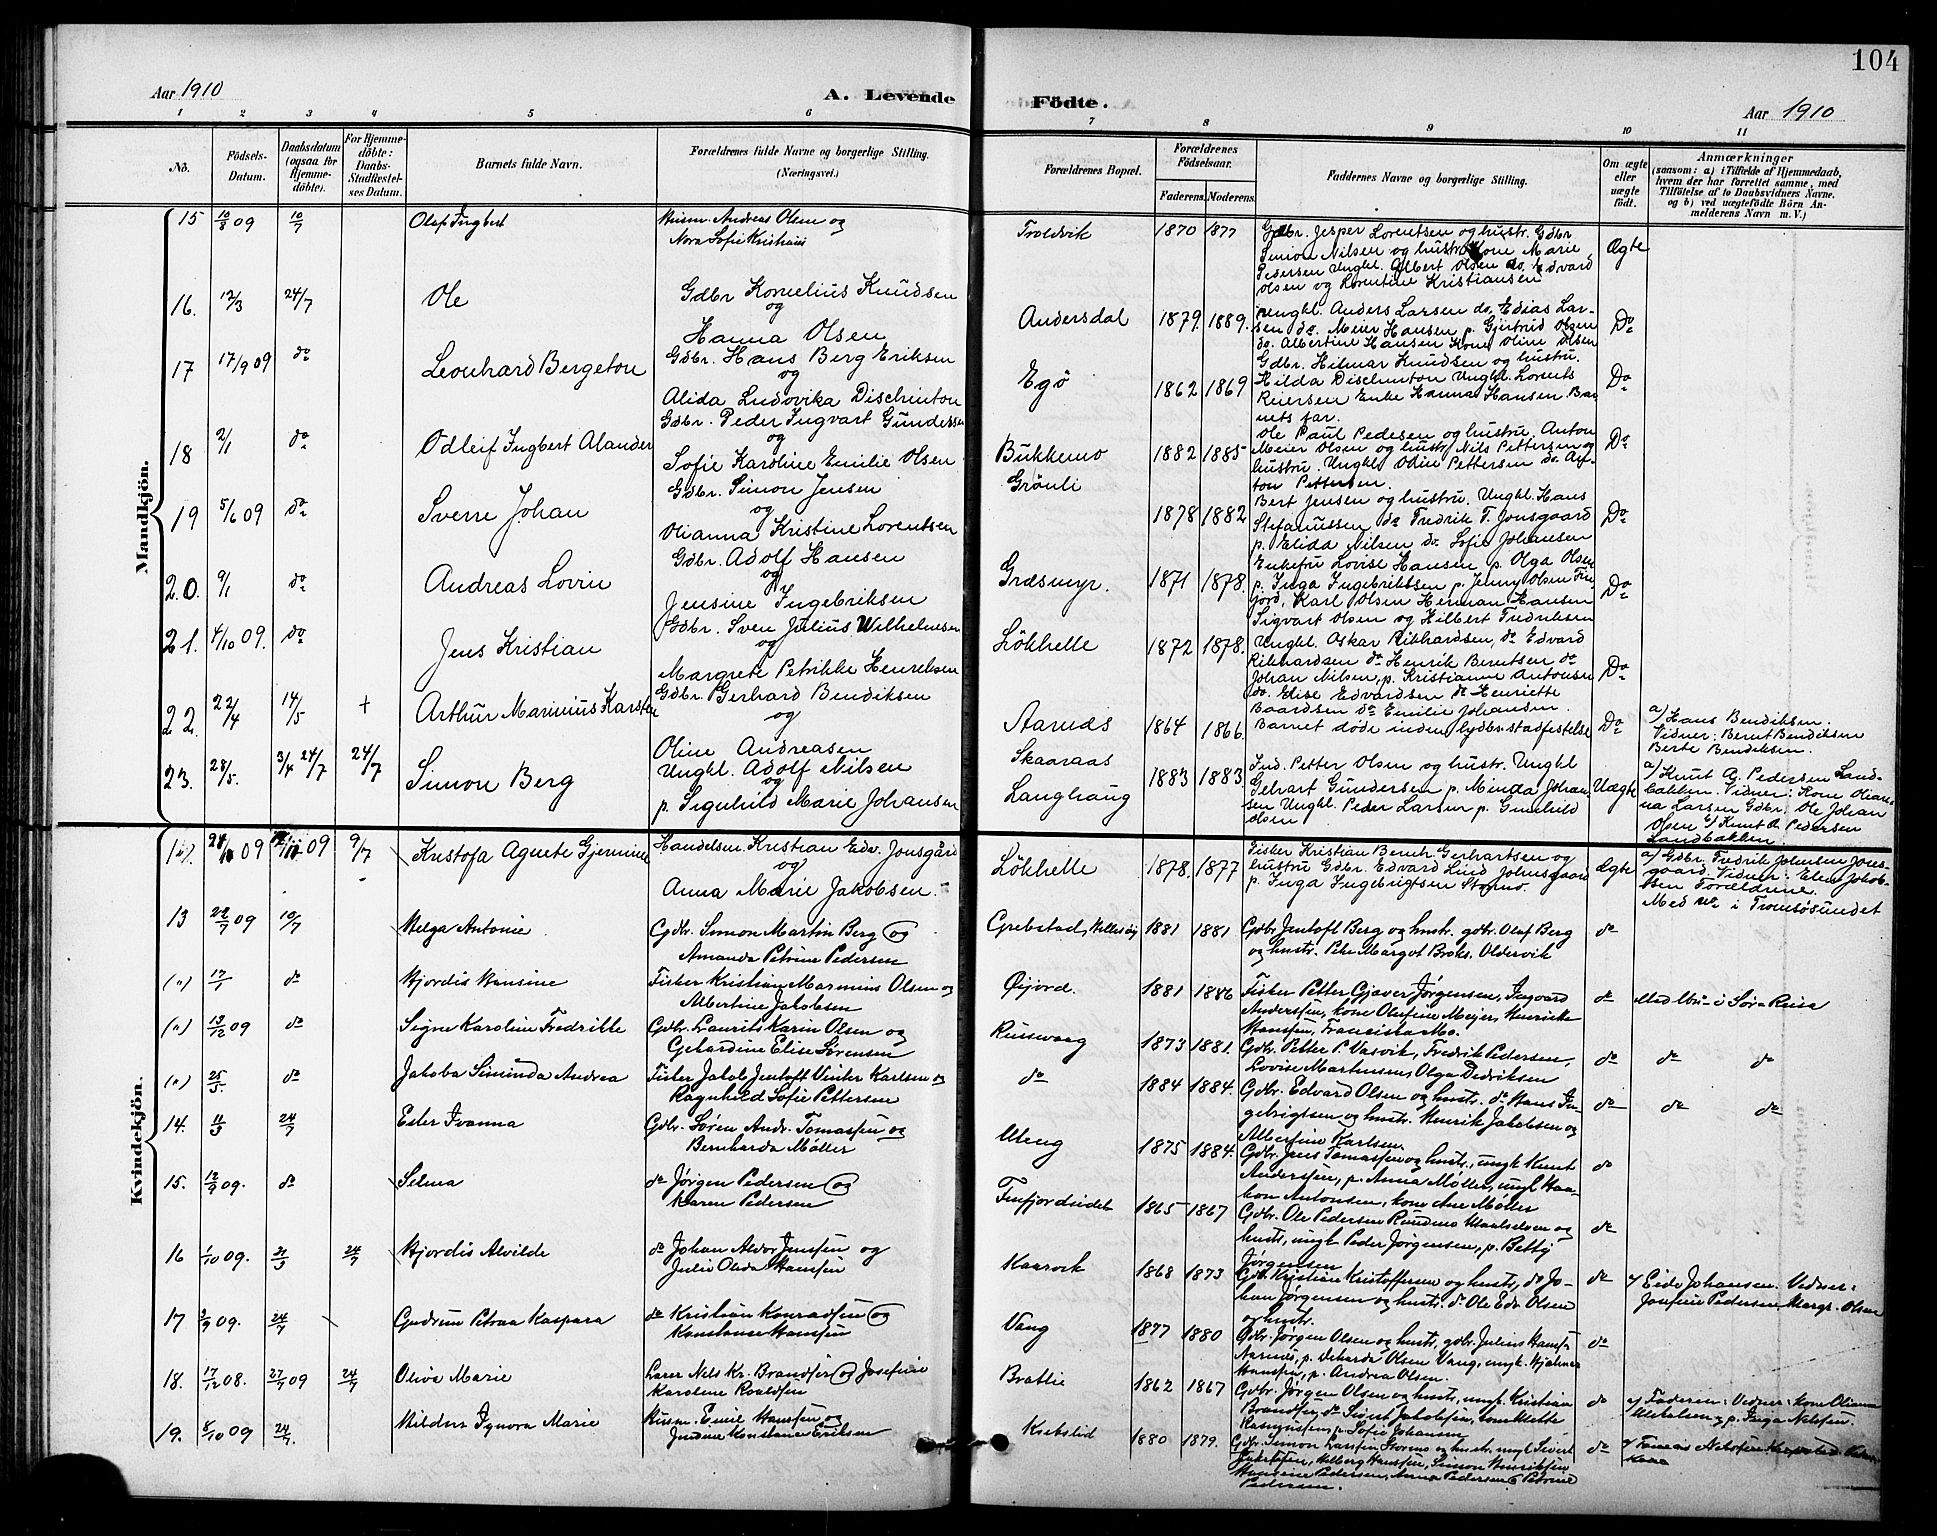 104
Aar 1910
A. Levende
Födte.
Aar 1910
1 2 3 4 5 6 7 8 9 10 11
No.
Födsels-
Datum.
Daabsdatum
(ogsaa for
Hjemme-
döbte).
For Hjemme-
döbte:
Daabs-
Stadfæstel-
ses Datum.
Barnets fulde Navn.
Forældrenes fulde Navne og borgerlige Stilling.
(Næringsvei.)
Forældrenes Bopæl.
Forældrenes
Födselsaar.
Faderens. Moderens.
Faddernes Navne og borgerlige Stilling.
Om ægte
eller
uægte
födt.
Anmærkninger
(saasom: a) i Tilfælde af Hjemmedaab,
hvem der har forrettet samme, med
Tilföielse af to Daabsvidners Navne.
og b) ved uægtefödte Börn An-
melderens Navn m. V.)
Mandkjön.
15 10/8 09 10/7 Olaf Ingbert
Husm. Andreas Olsen og
Nora Sofie Kristians
Troldvik 1870 1877
Gdbr. Jesper Lorentsen og hustr. Gdbr
Simon Nilsen og hustr. Kone Marie
Pedersen Ungkl. Albert Olsen do. Edvard
Olsen og Lorentine Kristiansen
Ægte
16. 12/3 24/7 Ole
Gdbr Kornelius Knudsen
og
Hanna Olsen
Andersdal 1879. 1889.
Ungkl. Anders Larsen do. Edias Lar-
sen do. Meier Hansen p. Gjertrud Olsen
do. Albertine Hansen Kone Oline Olsen
Do
17 17/9 09 do Leonhard Bergeton
Gdbr. Hans Berg Eriksen
og
Alida Ludovika Dischinton
Egö 1862 1869
Gdbr. Hilmar Knudsen og hustru.
Hilda Dischinton Ungkl. Lorents
Reiersen Enke Hanna Hansen Bar
nets far.
Do
18 2/1 do Odleif Ingbert Alander
Gdbr. Peder Ingvart Gundersen
og
Sofie Karoline Emilie Olsen
Bukkemo 1882 1885
Ole Paul Pedersen og hustru, Anton
Meier Olsen og hustr. Nils Pettersen og
hustru. Ungkl. Odin Pettersen do. An-
ton Pettersen.
Do
19 5/6 09 do Sverre Johan
Gdbr. Simon Jensen
og
Olianna Kristine Lorentsen
Grönli 1878 1882
Bert Jensen og hustru. Ungkl. Hans
Stefanussen do Fredrik T. Jonsgaard
p. Elida Nilsen do. Sofie Johansen
Do
20. 9/1 do Andreas Lovin
Gdbr. Adolf Hansen
og
Jensine Ingebriksen
Græsmyr. 1871 1878.
Enkefru Lovise Hansen p. Olga Olsen
p. Inga Ingebriktsen p. Jenny Olsen Fin
fjord, Karl Olsen Herman Hansen
Sigvart Olsen og Hilbert Fredriksen
Do
21. 4/10 09. do Jens Kristian
Gdbr. Sven Julius Wilhelmsen
og
Margrete Petrikke Henriksen
Lökhelle 1872 1878.
Ungkl. Oskar Rikhardsen, do Edvard
Rikhardsen do Henrik Berntsen do
Johan Nilsen, p. Kristianne Antonsen
do. Elise Edvardsen do Henriette
Baardsen do Emilie Johansen.
Do
22. 22/4 14/5 + Arthur Marinius Karsten
Gdbr. Gerhard Bendiksen
og
Oline Andreasen
Aarnæs 1864 1866.
Barnet döde inden stadfestelse
Do
a/ Hans Bendiksen.
Vidner: Bernt Bendiksen
Berte Bendiksen.
23. 28/5. 3/4 24/7 24/7 Simon Berg
Ungkl. Adolf Nilsen
og
p. Signhild Marie Johansen
Skaaraas
Langhaug 1883 1883
Ind. Petter Olsen og hustr. Ungkl
Gehart Gundersen p. Minda Johan-
sen Ungkl. Peder Larsen p. Gunhild
Olsen
Uægte
a/ Knut A. Pedersen Land-
bakken. Vidner: Kone Olian-
na Larsen Gdbr. Ole Johan
Olsen b/ Knut A. Pedersen
Landbakken.
Kvindekjön.
09 09 9/7 Kristofa Agnete Gjermine
Handelsm. Kristian Edv. Jonsgård
og
Anna Marie Jakobsen.
Lökhelle 1878. 1877
Fisker Kristian Bernh. Gerhartsen og
hustru Gdbr. Edvard Lind Johnsgaard
p. Inga Ingebrigtsen Stormo.
Ægte
a/ Gdbr. Fredrik Johnsen Jons-
gaard. Vidner: Elen Jakob-
sen Forældrene.
Med No i Tromsösundet
13 22/7 09 10/7 Helga Antonie
Gdbr. Simon Martin Berg og
Amanda Petrine Pedersen
Grebstad, 1881 1881
Gdbr Jentoft Berg og hustr. gdbr. Olaf Berg
og hustr. Margot Broks. Oldervik
do
(") 17/1 do Hjordis Hansine
Fisker Kristian Marinius Olsen og
Albertine Jakobsen
Øijord. 1881 1886
Fisker Petter Gjæver Jørgensen, Ingvard
Anderssen, kone Olufine Meijer, Henrikke
Hanssen, Franciska Mo.
do
(") 13/12 09 do Signe Karoline Fredrikke
Gdbr. Laurits Karin Olsen og
Gehardine Elise Sørensen
1873 1881.
Gdbr. Petter P. Vasvik, Fredrik Pedersen,
Lovise Martinsens, Olga Dedriksen
do do do
(") 25/3. do Jakoba Siminda Andrea
Fisker Jakob Jentoft Vinter Karlsen og
Ragnhild Sofie Pettersen
do 1884 1884.
Gdbr. Edvard Olsen og hustr. do Hans In-
gebrigtsen og hustr. Henrik Jakobsen og
Albertine Karlsen.
do do do
14. 11/3 24/7 Ester Ivanna
Gdbr. Søren Andr. Tomassen og
Bernharda Møller
Meng 1875 1884.
Gdbr. Jens Tomassen og hustr., ungk Knut
Anderssen, p. Anna Møller, ungk Haa-
kon Antonsen, kone Ane Møller
do
15. 12/9 09. do Selma
do Jørgen Pedersen og
Karen Pedersen
Finfjordeidet 1865 1867
Gdbr. Ole Pedersen Rundmo Maalselven og
hustr., ungk Peder Jørgensen, p. Betty
Jørgensen
do
16 1/10 09. 21/3 24/7 Hjordis Alvilde
do Johan Aldor Jenssen og
Julie Olida Hanssen
Kaarvik 1868 1873
Gdb. Kristian Kristoffersen og hustr, do Jo-
han Jørgensen og hustr. do Ole Edv. Olsen
og hustr.
do
a/ Eide Johansen. Vidner:
Josefine Pedersen Margr. Olsen
17 2/9 09. 24/7 Gudrun Petraa Kaspara
do Kristian Konradsen og
Konstanse Hanssen
Vang 1877 1880
Gdbr. Jørgen Olsen og hustr, gdbr. Julius Hanssen
Aarnæs, p. Deharda Olsen Vang, ungk. Hjalmar
Hanssen, p. Andrea Olsen.
do
18. 17/12 08. 27/7 09 24/7 Oliva Marie
Lærer Nils Kr. Brandsen og Josefine
Karoline Roaldsen
Bratlie 1862 1867
Gdbr. Jørgen Olsen og hustr., ungk. Kristian
Brandsen, do Sivert Jakobsen,
Rasmussen, p. Sofie Johansen
do
a/ Faderen: Vidner: kone Olianna
Mikalsen, p. Inga Nilssen.
19. 8/10 09 24/7. Hildur Ignora Marie
Husm. Emil Hanssen og
Konstanse Eriksen
1880 1879.
Gdbr. Simon Larssen Stormo og hustr. ungk Sivert
Hilberg Hanssen, Simon Henriksen
Hansine Pedersen, Anna Pedersen og Petrine
Pedersen.
do